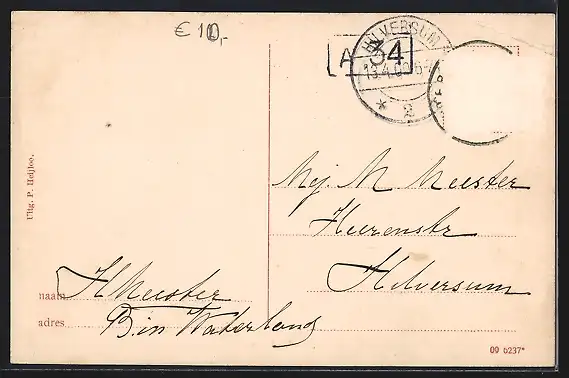 € 10,-
HILVERSUM
A 34
13.4.09
* 2
Uitg. P. Heijloo.
Mej. M Meester
Heerenstr
Hilversum
naam H Meester
adres B in Waterland
09 5237*